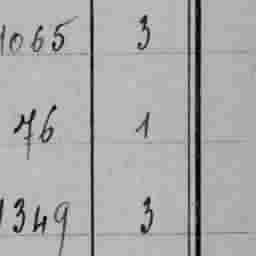 1065 3
76 1
1349 3